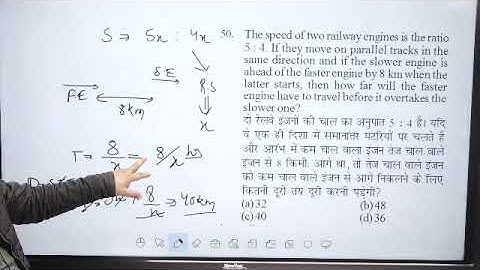 S ⇒ 5x : 4x
50. The speed of two railway engines is the ratio
5 : 4. If they move on parallel tracks in the
same direction and if the slower engine is
ahead of the faster engine by 8 km when the
latter starts, then how far will the faster
engine have to travel before it overtakes the
slower one?
दो रेलवे इंजनों की चाल का अनुपात 5 : 4 है। यदि
वे एक ही दिशा में समानांतर पटरियों पर चलते हैं
और आरंभ में कम चाल वाला इंजन तेज चाल वाले
इंजन से 8 किमी. आगे था, तो तेज चाल वाले इंजन
को कम चाल वाले इंजन से आगे निकलने के लिए
कितनी दूरी तय दूरी करनी पड़ेगी?
(a) 32 (b) 48
(c) 40 (d) 36
SE
FE
8km
RS
x
T ⇒ 8/x = 8/x hrs
8/x ⇒ 40km